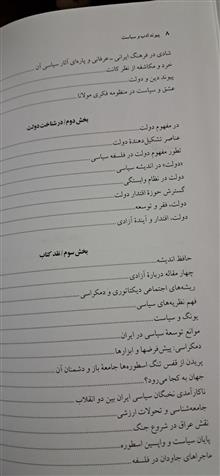 ۸ پیوند ادب و سیاست
شادی در فرهنگ ایرانی ـ عرفانی و پاره‌ای آثار سیاسی آن
خرد و مکاشفه از نظر کانت
پیوند دین و دولت
عشق و سیاست در منظومه فکری مولانا
بخش دوم / در شناخت دولت
در مفهوم دولت
عناصر تشکیل‌دهندهٔ دولت
تطور مفهوم دولت در فلسفه سیاسی
«دولت» در اندیشه سیاسی
دولت در نظام وابستگی
گسترش حوزهٔ اقتدار دولت
دولت، فقر و توسعه
دولت، اقتدار و آیندهٔ آزادی
بخش سوم / نقد کتاب
حافظ اندیشه
چهار مقاله دربارهٔ آزادی
ریشه‌های اجتماعی دیکتاتوری و دمکراسی
فهم نظریه‌های سیاسی
یونگ و سیاست
موانع توسعهٔ سیاسی در ایران
دمکراسی: پیش‌فرضها و ابزارها
پریدن از قفس تنگ اسطوره‌ها جامعهٔ باز و دشمنان آن
جهان به کجا می‌رود؟
ناکارآمدی نخبگان سیاسی ایران بین دو انقلاب
جامعه‌شناسی و تحولات ارزشی
نقش عراق در شروع جنگ
پایان سیاست و واپسین اسطوره
ماجراهای جاودان در فلسفه